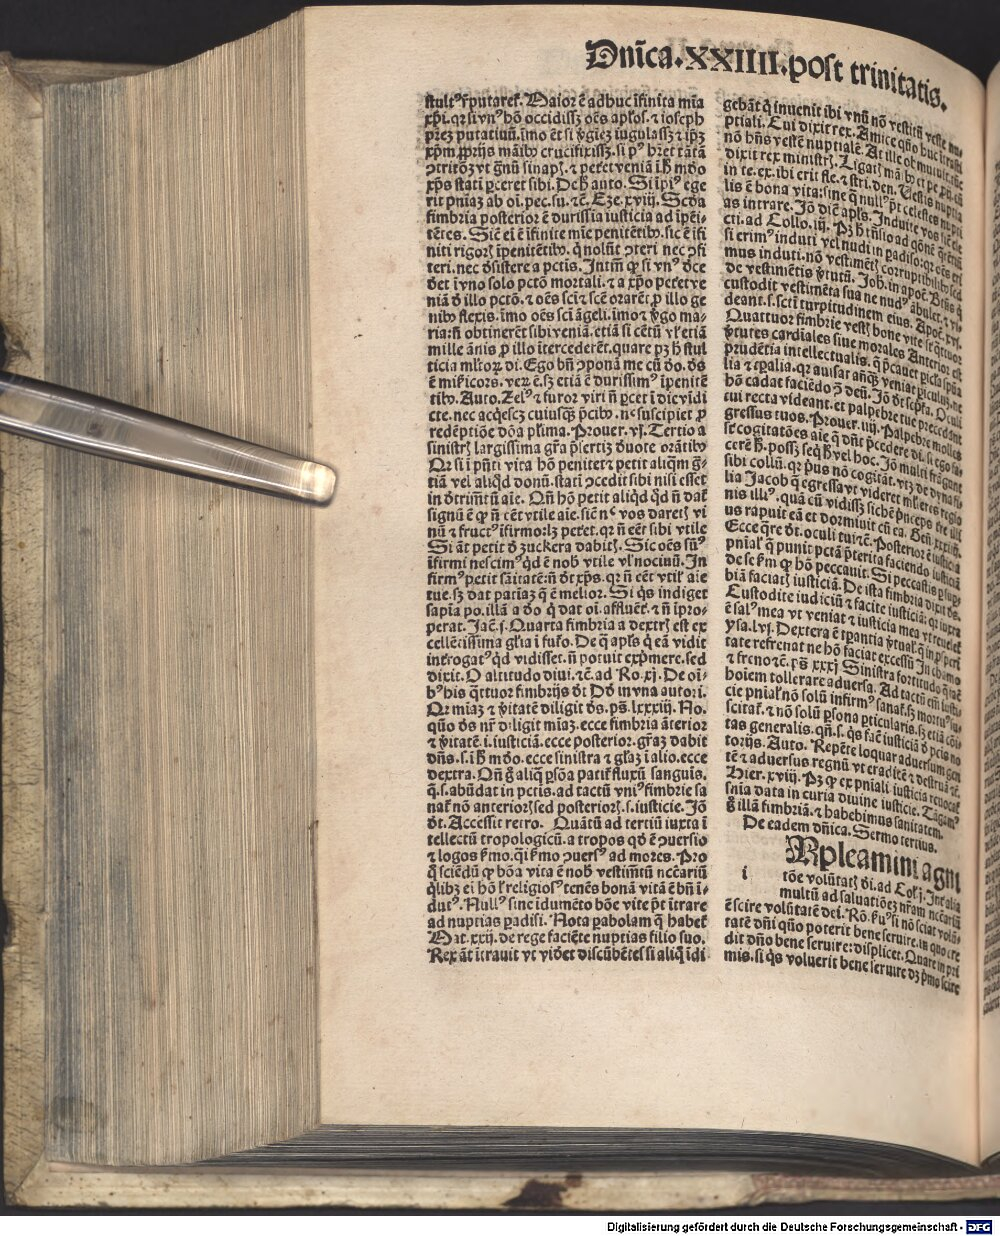 Dnīca.XXIIII.post trinitatis.
stultꝰ rputaret. Maior ē adhuc īfinita mīa
xp̄i. qꝛ si vnꝰ hō occidissꝫ oēs apl̓os. ⁊ ioseph
p̄ꝛeꝫ putatiuū. īmo ēt si ꝟgīeꝫ iugulassꝫ ⁊ ip̄ꝫ
xp̄m ꝓprijs māibꝰ crucifixissꝫ. si pꝰ hret tātā
ↄtritōeꝫ vt gnū sinapꝭ. ⁊ petet veniā ī h̄ mūdo
xp̄s stati ꝑceret sibi. De h̄ auto. Si īpiꝰ ege
rit pniaꝫ ab oī. pec. su. ⁊c̄. Eze. xviij. Scd̓a
fimbria posterior ē durissīa iusticia ad īpēi-
tētes. Sic̄ ei ē īfinite mīe penitētibꝰ. sic ē īfi
niti rigorꝭ īpenitētibꝰ. q̄ nolūt ↄteri nec ↄfi
teri. nec d̓sistere a pctis. Intm̄ ꝙ si vnꝰ d̓ce
d̓et ī vno solo pctō mortali. ⁊ a xp̄o petet ve
niā d̓ illo pctō. ⁊ oēs scī ⁊ scē orarēt ꝓ illo ge
nibꝰ flexis. īmo oēs scī āgeli. īmo ⁊ ꝟgo ma-
ria: n̄ obtinerēt sibi veniā. etiā si cētū vl̓ etiā
mille ānis ꝓ illo ītercederēt. quare pꝫ h̄ stul
ticia mltoꝝ di. Ego bn̄ ↄponā me cū d̓o. d̓s
ē mīcors. veꝝ ē. sꝫ etiā ē durissimꝰ īpenitē
tibꝰ. Auto. Zelꝰ ⁊ furor viri n̄ ꝑcet ī die vīdi
cte. nec acq̄escꝫ cuiusqꝫ p̄cibꝰ. nec suscipiet ꝓ
redēptiōe dōa pl̓ima. Prouer. vj. Tertio a
sinistrꝭ largissima gr̄a p̄sertiꝫ d̓uote orātibꝰ
Qꝛ si ī pn̄ti vita hō penitet ⁊ petit aliqm̄ gr̄-
tiā vel aliqd̓ donū. stati ↄcedit sibi nisi esset
in d̓trim̄tū aīe. Qn̄ hō petit aliqd̓ qd̓ n̄ dat̓
signū ē ꝙ n̄ cēt vtile aīe. sic̄ nec vos daretꝭ vi
nū ⁊ fructꝰ īfirmo: lꝫ petet. qꝛ n̄ eēt sibi vtile
Si āt petit d̓ zuckera dabitꝭ. Sic oēs sumꝰ
īfirmi nescimꝰ qd̓ ē nob̓ vtile vl̓ nociuū. In
firmꝰ petit sāitatē: n̄ d̓t xp̄s. qꝛ n̄ eēt vtil̓ aīe
tue. sꝫ dat patiaꝫ q̄ ē melior. Si qs indiget
sapīa po. illā a d̓o q̄ dat oī. afflueēt. ⁊ n̄ īpro-
perat. Jac. j. Quarta fimbria a dextrꝭ est ex
cellētissima gl̓ia ī futo. De q̄ apl̓s q̄ eā vidit
int̓rogatꝰ qd̓ vidisset. n̄ potuit exp̄mere. sed
dixit. O altitudo diui. ⁊c̄. ad Ro. xj. De oī-
bꝰ his q̄ttuor fimbrijs d̓t Dd̓ in vna autori.
Qꝛ mīaꝫ ⁊ ꝟitatē diligit d̓s. p̄s. lxxxiij. No.
quō d̓s nr̄ diligit mīaꝫ. ecce fimbria āterior
⁊ ꝟitatē. i. iusticiā. ecce posterior. gr̄aꝫ dabit
dn̄s. s. ī h̄ mūdo. ecce sinistra ⁊ gl̓iaꝫ ī alio. ecce
dextra. Qn̄ g̊ aliq̄ ꝑsōa patit̓ fluxū sanguis.
q̄. s. abūdat in pctis. ad tactū vniꝰ fimbrie sa
nat̓ nō anteriorꝭ sed posteriorꝭ. s. iusticie. Jō
d̓t. Accessit retro. Quātū ad tertiū iuxta ī
tellectū tropologicū. a tropos qd̓ ē ↄuersio
⁊ logos ẜmo. qi ẜmo ↄuersꝰ ad mores. Pro
q̄ sciēdū ꝙ bōa vita ē nob̓ vestim̄tū nccāriū
q̄libꝫ ei hō l̓ religiosꝰ tenēs bonā vitā ē bn̄ ī-
dutꝰ. Nullꝰ sine idumēto bōe vite p̄t ītrare
ad nuptias padisi. Nota pabolam q̄ habet̓
Mat. xxij. de rege faciēte nuptias filio suo.
Rex āt ītrauit vt vid̓et discūbētes si aliq̄ īdi
gebāt q̄ inuenit ibi vnū nō vestitū veste nu-
ptiali. Cui dixit rex. Amice quō huc ītrasti
nō hn̄s vestē nuptialē. At ille obmutuit. tūc
dixit rex ministrꝭ. Ligatꝭ māibꝰ et pe.
in te. ex. ibi erit fle. ⁊ stri. den. Vestis nuptia
lis ē bona vita: sine q̄ nullꝰ p̄t celestes nupti
as intrare. Jō dic̄ apl̓s. Induite vos
cti. ad Collo. iij.
si erimꝰ induti vel nudi in padiso: qꝛ oēs eri
mus induti. nō vestimētꝭ corruptibilibꝰ sed
de vestimētis ꝟtutū. Joh. in apoc. Btūs q̄
custodit vestimēta sua ne nudꝰ ābulet. ⁊ vi-
deant. s. scti turpitudinem eius. Apoc. xvj.
Quattuor fimbrie vestꝭ bone vite sūt q̄ttuor
ꝟtutes cardiales siue morales Anterior est
prudētia intellectualis.
hō cadat faciēdo ꝯ deū. Jō d̓t sc̄pta. Oculi
tui recta videant. et palpebre tue precedant
gressus tuos. Prouer. iiij. Palpebre
sibi collū. qꝛ pꝰus nō cogitat. vtꝫ de dyna fi-
lia Jacob q̄ egressa vt videret mlieres regio
nis illiꝰ. quā cū vidissꝫ sichē p̄nceps tre illi
us rapuit eā et dormiuit cū ea. Gen. xxxiiij.
Ecce q̄re d̓t. oculi tui ⁊c̄. Posterior ē iusticia
pnial̓ q̄ punit pctā p̄terita faciendo iusticiā
de se ẜm ꝙ hō peccauit.
biā faciatꝭ iusticiā. De ista fimbria dixit d̓s.
Custodite iudiciū ⁊ facite iusticiā: qꝛ iuxta
ē salꝰ mea vt veniat ⁊ iusticia mea vt reuelet̓
ysa. lvj. Dextera ē tꝑantia
tate refrenat ne hō faciat excessū In chamo
⁊ freno ⁊c̄. p̄s xxxj Sinistra fortitudo q̄ fac̄
hoīem tollerare aduersa. Ad tactū em̄ iusti-
cie pnial̓ nō solū infirmꝰ sanat̓. sꝫ mortuꝰ su-
scitat̓. ⁊ nō solū ꝑsona ꝑticularis. sꝫ etiā cōi-
tas generalis. qn̄. s. q̄s fac̄ iusticiā d̓ pctis no
torijs. Auto. Repēte loquar aduersum gen
tē ⁊ aduersus regnū vt eradicē ⁊ destruā ⁊c̄.
Hier. xviij. Pꝫ ꝙ ex pniali iusticia reuocat̓
snīa data in curia diuine iusticie. Tagamꝰ
g̊ illā fimbriā. ⁊ habebimus sanitatem.
De eadem dn̄ica. Sermo tertius.
i
Impleamini agni
tōe volūtatꝭ d̓i. ad Col. j. Int̓ alia
multū ad saluatiōeꝫ nr̄am nccāriū
ē scire volūtatē dei. Rō. ẜuꝰ si nō sciat volū-
tatē dn̄i quō poterit bene seruire. in quo cre
dit dn̄o bene seruire: displicet. Quare in pri
mis. si q̄s voluerit bene seruire dꝫ p̄mo scire
Digitalisierung gefördert durch die Deutsche Forschungsgemeinschaft - DFG